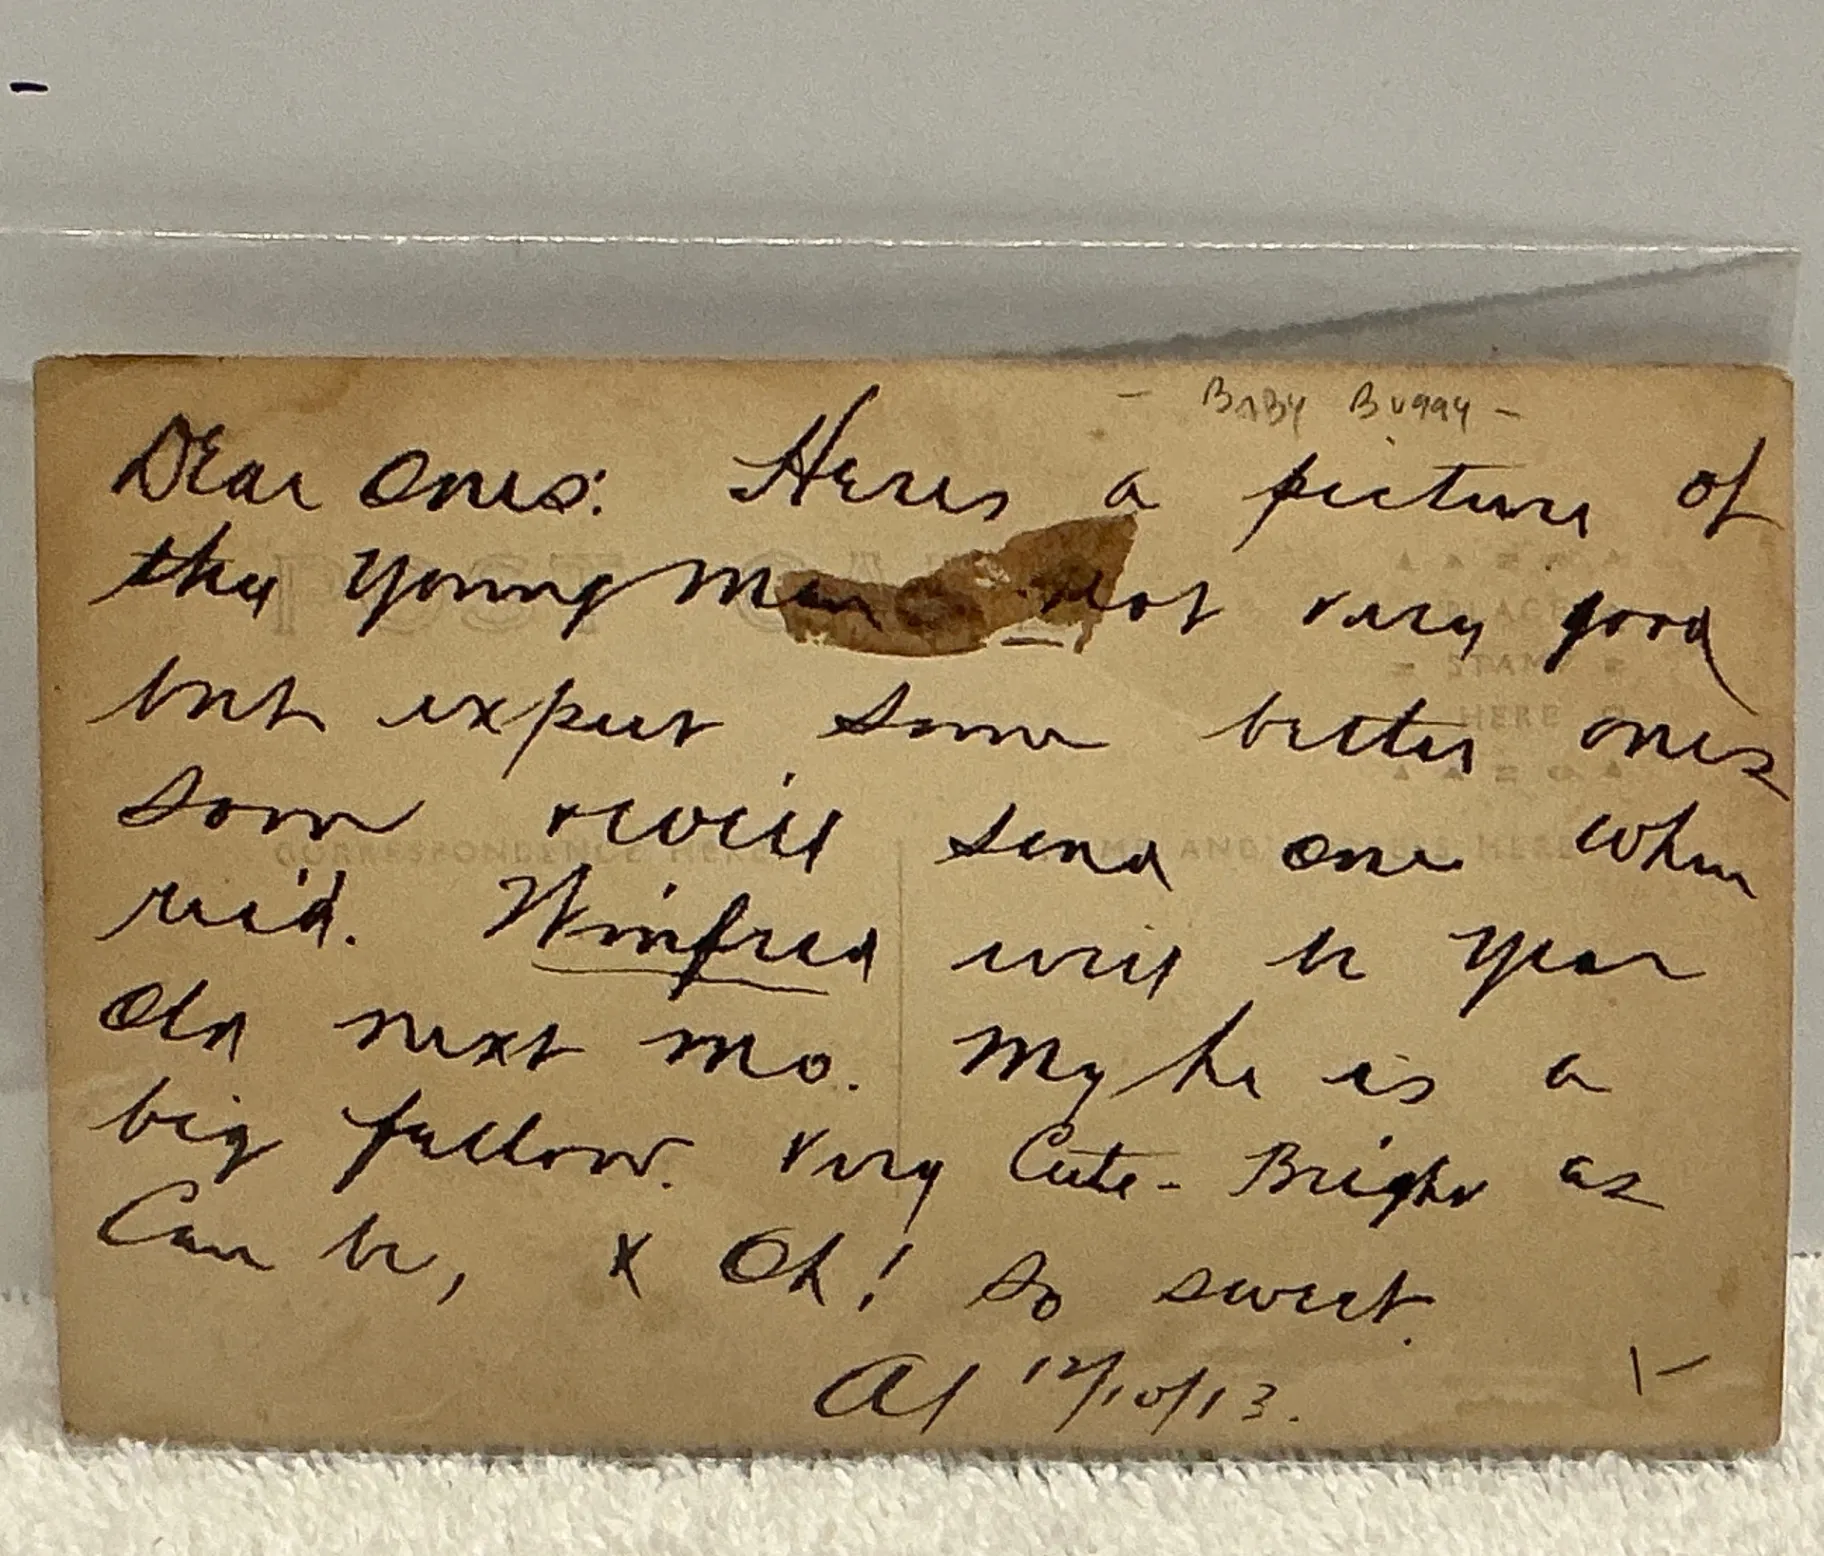 - BABY Buggy -
Dear Ones: Heres a picture of
the Young Man Not very good
but expect some better ones
soon & will send one when
rec'd. Winfred will be year
old next mo. My he is a
big fellow. Very Cute - Bright as
Can be, & Oh! so sweet.
Al 12/10/13.
POST CARD
PLACE
STAMP
HERE
CORRESPONDENCE HERE
NAME AND ADDRESS HERE